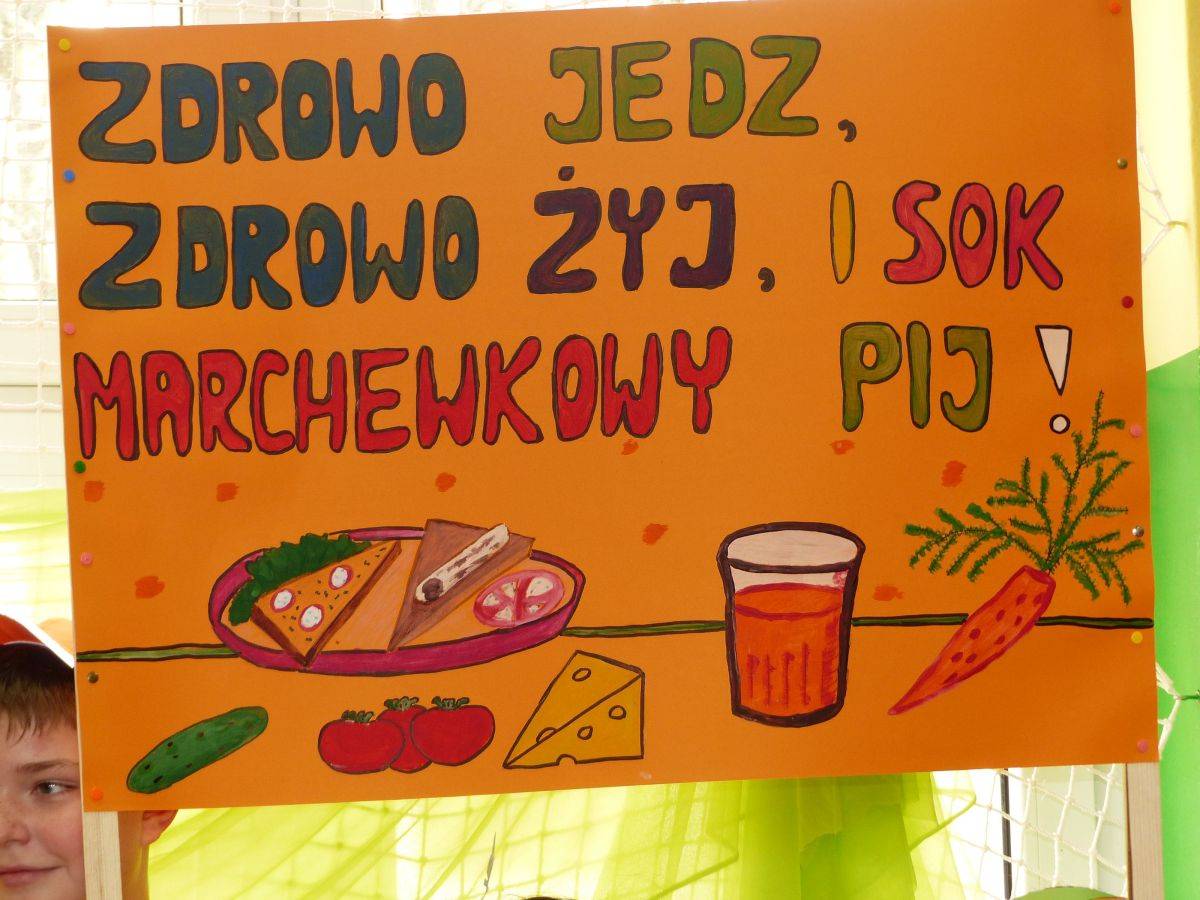 ZDROWO JEDZ,
ZDROWO ŻYJ, I SOK
MARCHEWKOWY PIJ!